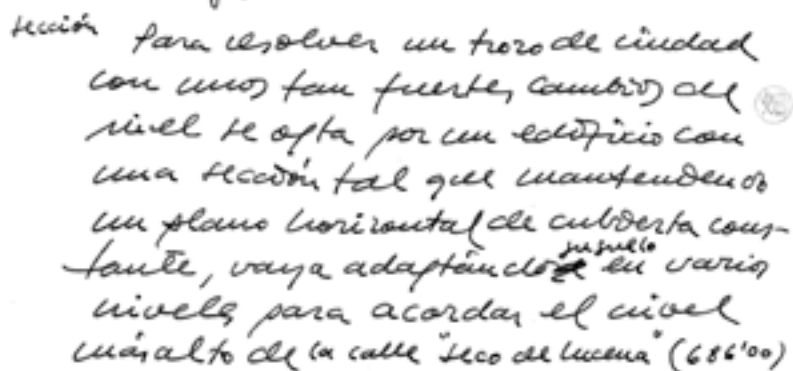 sección
Para resolver un trozo de ciudad
con unos tan fuertes cambios de
nivel se opta por un edificio con
una sección tal que mantendendo
un plano horizontal de cubierta cons-
tante, vaya adaptándo en varios
niveles para acordar el nivel
más alto de la calle "seco de lucena" (686'00)